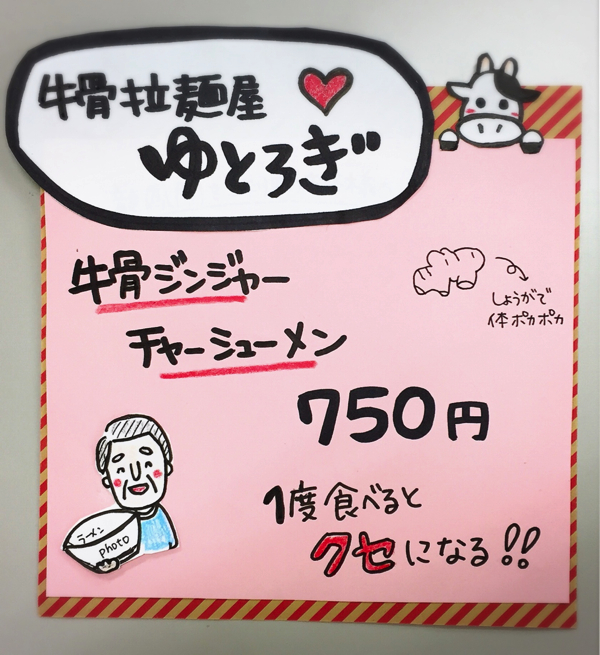 牛骨拉麺屋
ゆとろぎ
牛骨ジンジャー
チャーシューメン
しょうがで
体ポカポカ
750円
ラーメン
photo
1度食べると
クセになる!!